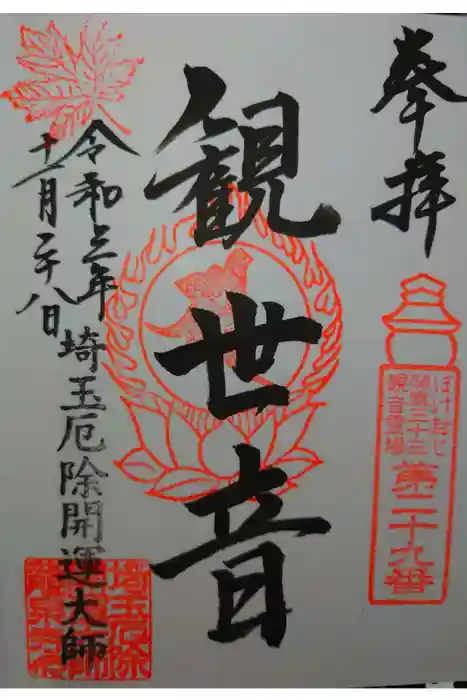 奉拝
ぼけ封じ
関東三十三
観音霊場
第二十九番
観世音
令和三年
十一月二十八日
埼玉厄除開運大師
埼玉厄除